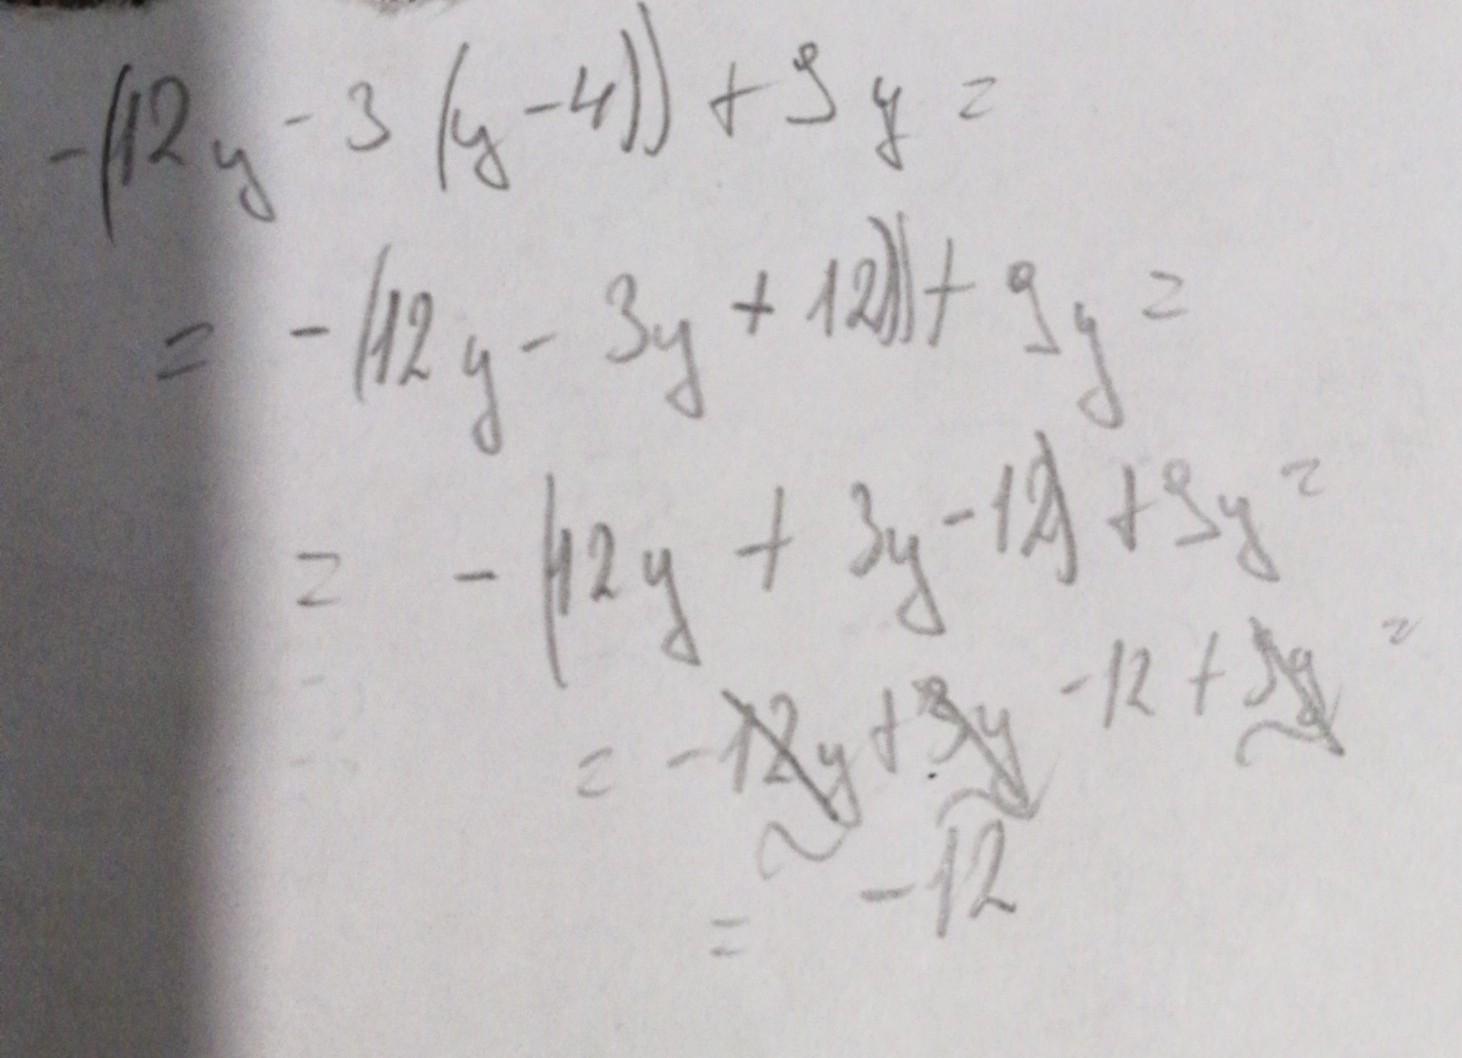 -(12y - 3(y-4)) + 9y =
= -(12y - 3y + 12)) + 9y =
= -(12y + 3y - 12) + 9y =
= -12y + 3y - 12 + 9y =
= -12